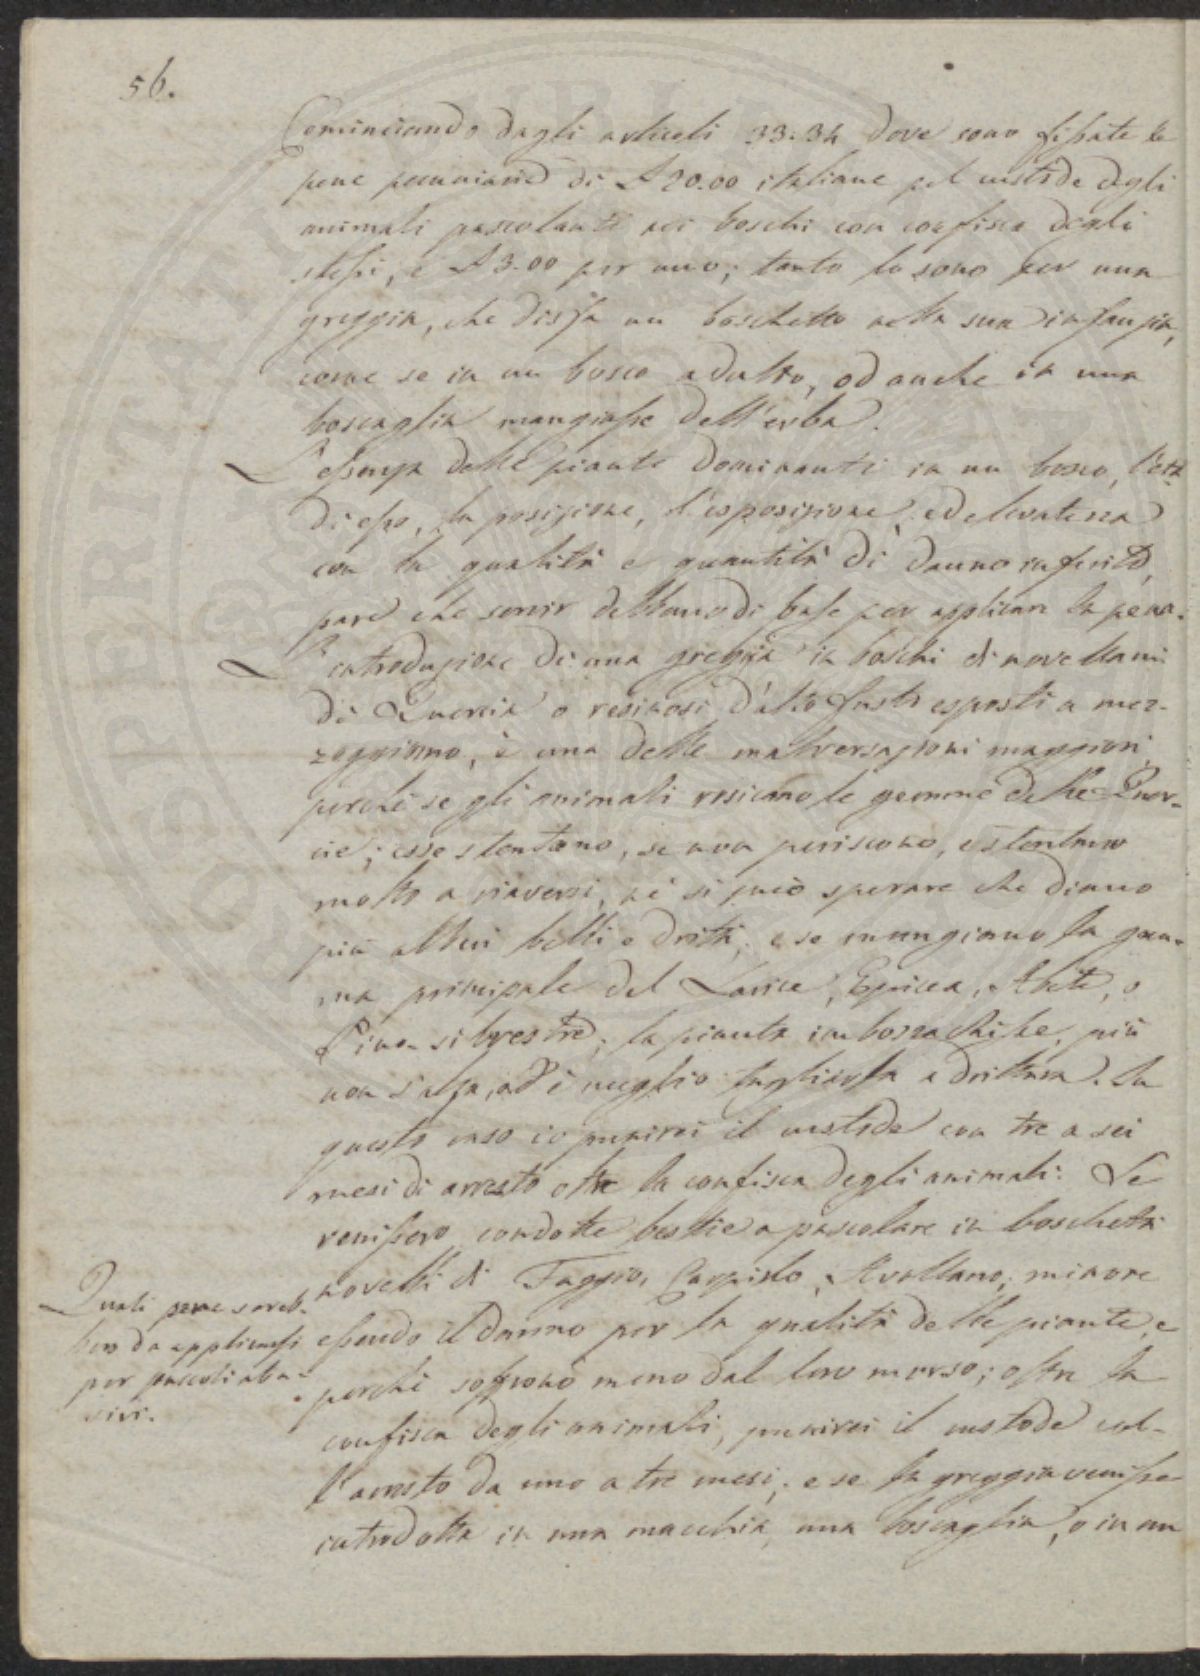 56.
Cominciando dagli articoli 33. 34 dove sono fissate le
pene pecuniarie di £ 20.00 italiane pel custode degli
animali pascolanti nei boschi con confisca degli
stessi, e £ 3.00 per uno; tanto lo sono per una
greggia, che disfa un boschetto nella sua infanzia,
come se in un bosco adulto, od anche in una
boscaglia mangiasse dell'erba.
L'essenza delle piante dominanti in un bosco, l'età
di esso, la posizione, l'esposizione, ed elevatezza
con la qualità e quantità di danno inferito,
pare che servir debbano di base per applicare la pena.
L'introduzione di una greggia in boschi di novellami
di Quercia o resinosi d'alto fusto esposti a mez-
zoggiorno, è una delle malversazioni maggiori,
perchè se gli animali rosicano le gemme delle Quer-
cie; esse stentano, se non periscono, e stentano
molto a riaversi, nè si può sperare che diano
più alberi belli e dritti; e se mangiano la gem-
ma principale del Larice, Epicea, Abete, o
Pino silvestre; la pianta imbozzachisce, più
non s'alza, ed è meglio tagliarla a drittura. In
questo caso io punirei il custode con tre a sei
mesi di arresto oltre la confisca degli animali. Se
venissero condotte bestie a pascolare in boschetti
novelli di Faggio, Carpino, Avellano; minore
essendo il danno per la qualità delle piante, e
perchè soffrono meno dal loro morso; oltre la
confisca degli animali, punirei il custode col-
l'arresto da uno a tre mesi; e se la greggia venisse
introdotta in una macchia, una boscaglia, o in un
Quali pene sareb-
bero da applicarsi
per pascoli abu-
sivi.